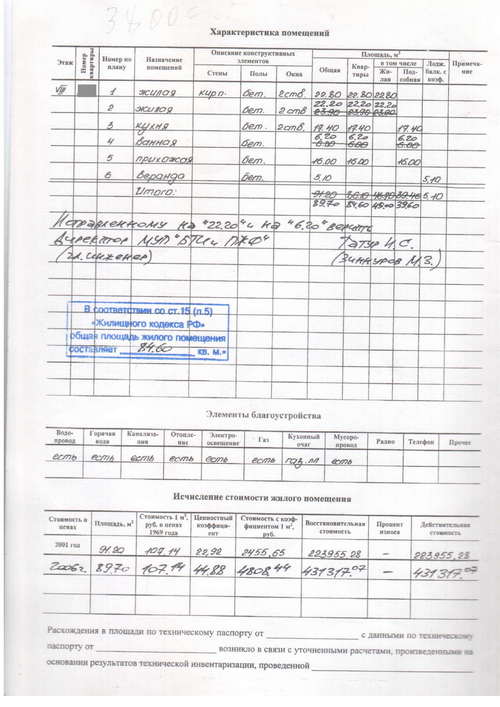 34,00
Характеристика помещений
Этаж Номер квартиры Номер по плану Назначение помещений Описание конструктивных элементов Площадь, м² Лодж. балк. с коэф. Примечание
Стены Полы Окна Общая Квартиры в том числе Жилая Подсобная
VIII 1 жилая кирп. бет. 2 ств. 22.80 22.80 22.80
2 жилая бет. 2 ств 22.20 22.20 22.20
23.90 23.90 23.90
3 кухня бет. 2 ств. 17.40 17.40 17.40
4 ванная бет. 6,20 6.20 6.20
6.00 6.00 6.00
5 прихожая бет. 16.00 16.00 16.00
6 веранда бет. 5,10 5,10
Итого: 91.20 5,10
89.70 84,60 45,00 39.60
Исправленному на "22.20" и на "6.20" верить
Директор МУП "БТИ и ПЖФ" Татур И.С.
(гл. инженер) (Зиннуров М.З.)
В соответствии со ст.15 (п.5)
«Жилищного кодекса РФ»
общая площадь жилого помещения
составляет 84.60 кв. м.»
Элементы благоустройства
Водопровод Горячая вода Канализация Отопление Электроосвещение Газ Кухонный очаг Мусоропровод Радио Телефон Прочее
есть есть есть есть есть есть газ.пл есть
Исчисление стоимости жилого помещения
Стоимость в ценах Площадь, м² Стоимость 1 м², руб. в ценах 1969 года Ценностный коэффициент Стоимость с коэффициентом 1 м², руб. Восстановительная стоимость Процент износа Действительная стоимость
2001 год 91.20 107.14 22,92 2455,65 223955,28 – 223955,28
2006г. 89.70 107.14 44.88 4808,44 431317.07 – 431317.07
Расхождения в площади по техническому паспорту от с данными по техническому
паспорту от возникло в связи с уточненными расчетами, произведенными на
основании результатов технической инвентаризации, проведенной